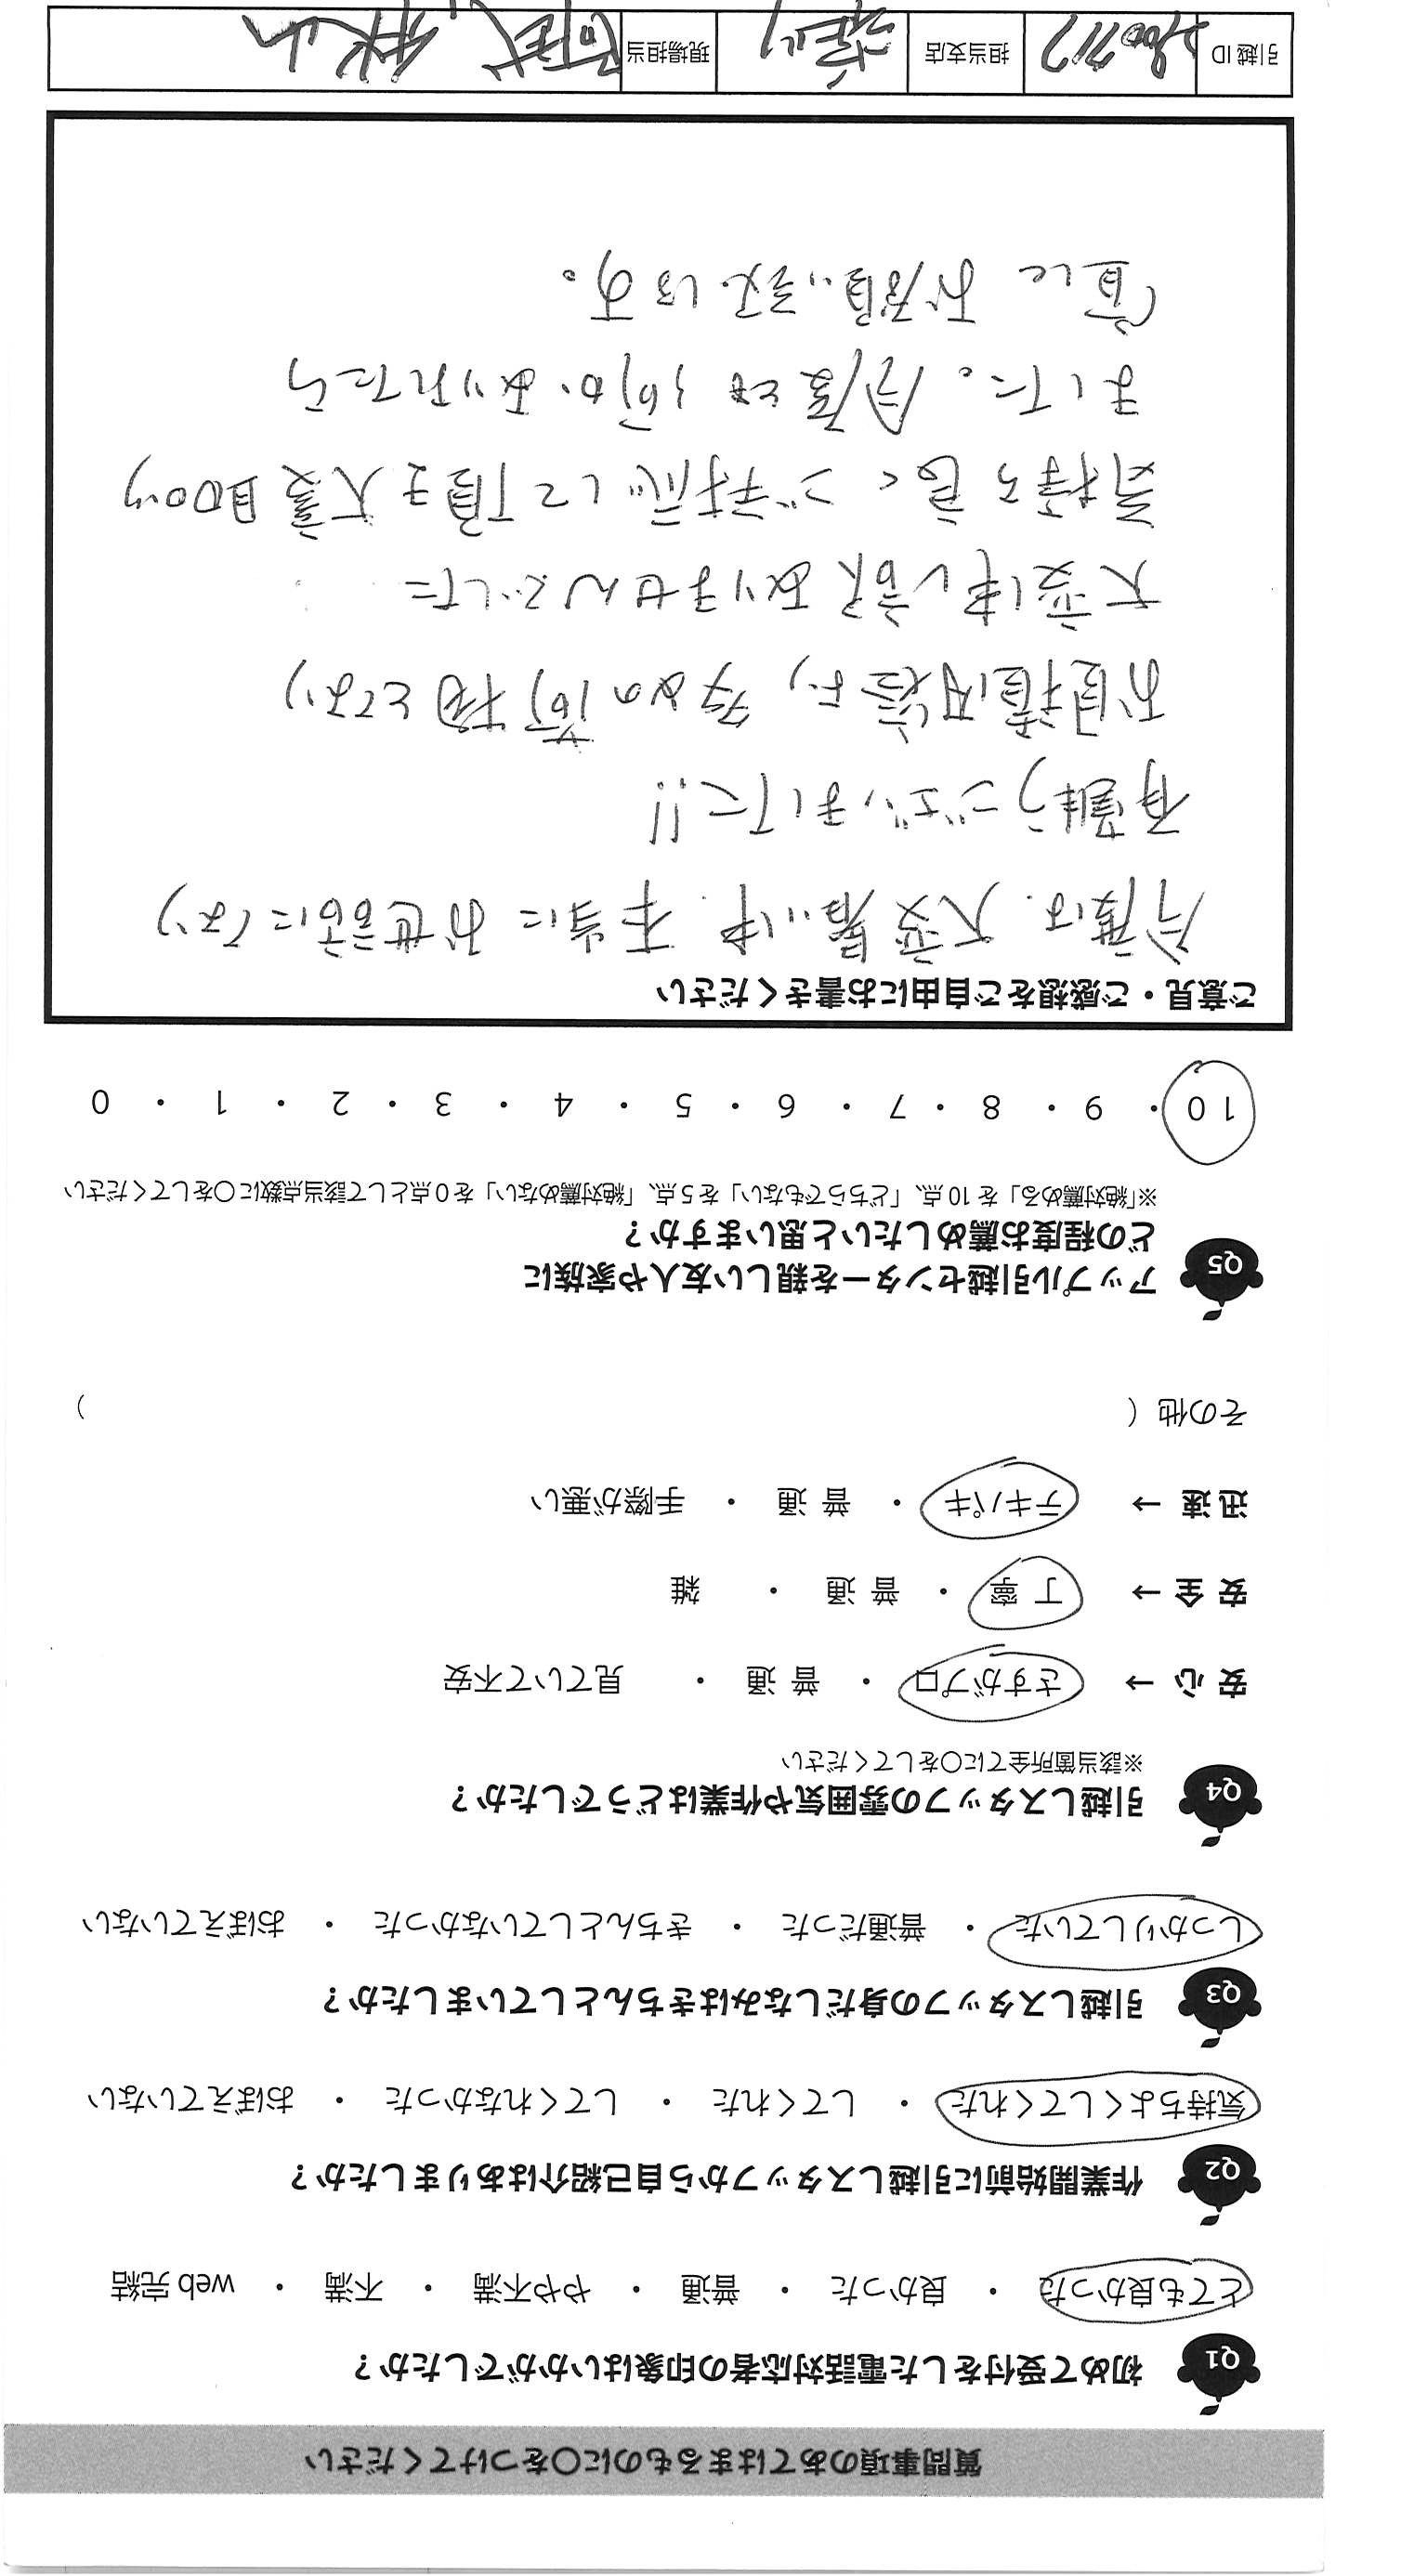 質問事項のあてはまるものに○をつけてください
Q1 初めて受付をした電話対応者の印象はいかがでしたか？
とても良かった ・ 良かった ・ 普通 ・ やや不満 ・ 不満 ・ web 完結
Q2 作業開始前に引越しスタッフから自己紹介はありましたか？
気持ちよくしてくれた ・ してくれた ・ してくれなかった ・ おぼえていない
Q3 引越しスタッフの身だしなみはきちんとしていましたか？
しっかりしていた ・ 普通だった ・ きちんとしていなかった ・ おぼえていない
Q4 引越しスタッフの雰囲気や作業はどうでしたか？
※該当箇所全てに○をしてください
安 心 → さすがプロ ・ 普 通 ・ 見ていて不安
安 全 → 丁 寧 ・ 普 通 ・ 雑
迅 速 → テキパキ ・ 普 通 ・ 手際が悪い
その他（ ）
Q5 アップル引越センターを親しい友人や家族に
どの程度お薦めしたいと思いますか？
※「絶対薦める」を 10 点、「どちらでもない」を 5 点、「絶対薦めない」を 0 点として該当点数に○をしてください
10 ・ 9 ・ 8 ・ 7 ・ 6 ・ 5 ・ 4 ・ 3 ・ 2 ・ 1 ・ 0
ご意見・ご感想をご自由にお書きください
今度は、大変暑い中、本当にお世話になり
有難うございました!!
お見積内容より、多めの荷物となり
大変申し訳ありませんでした
気持ち良くご対応して頂き大変助かり
ました。今度とも何かありましたら
宜しくお願い致します。
引越 ID 担当支店 現場担当 秋山